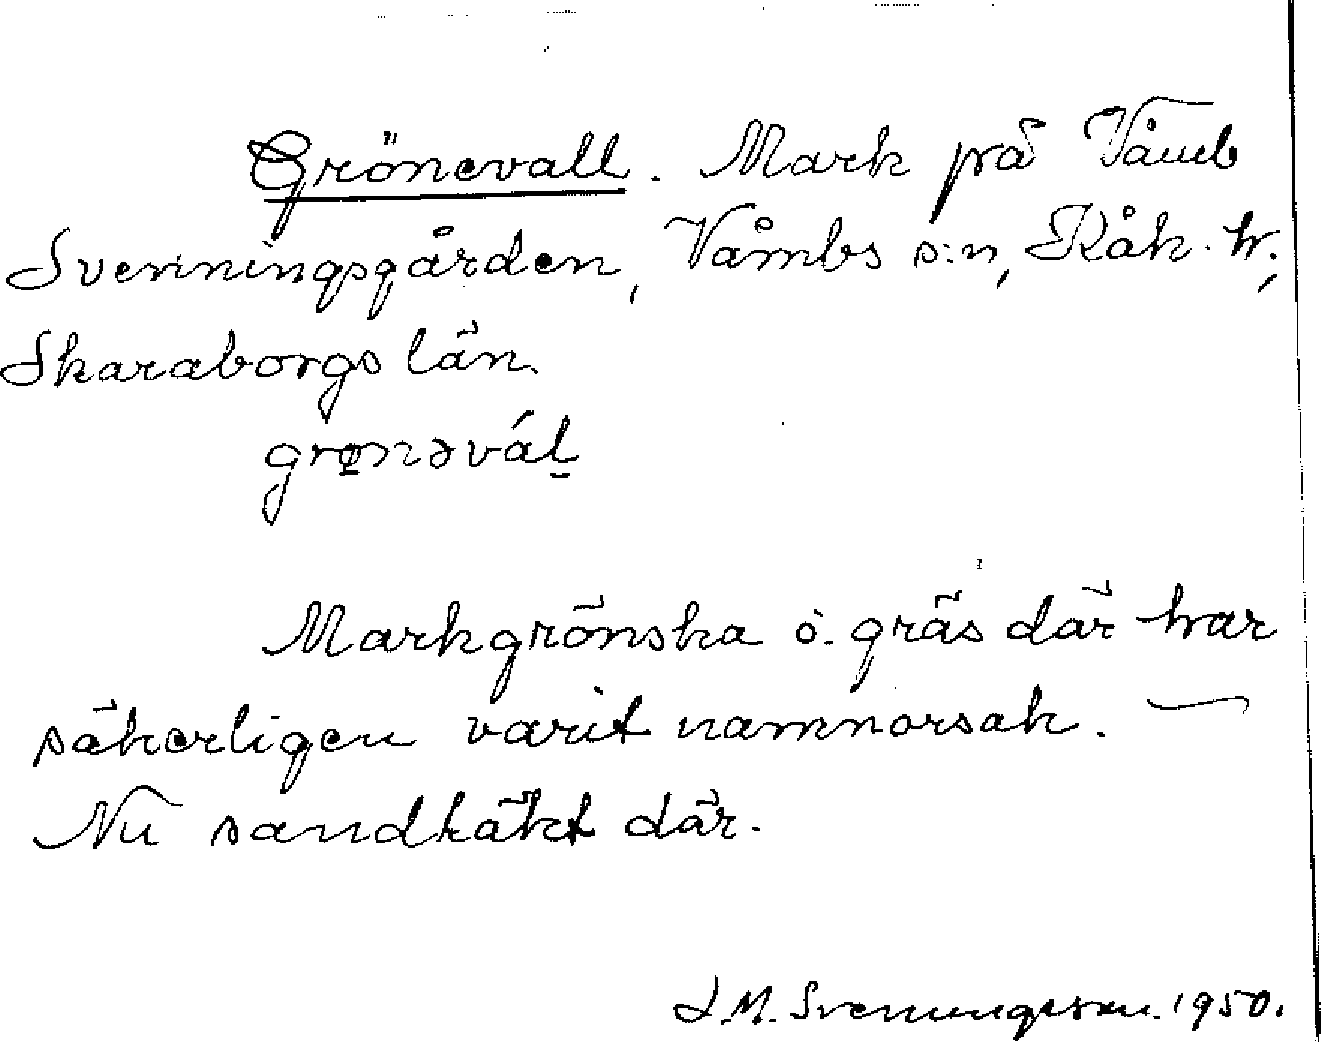 Grönevall. Mark på Våmb
Svenningsgården, Våmbs s:n, Kåk. h.,
Skaraborgs län.
grønəvál̠
Markgrönska o. gräs där har
säkerligen varit namnorsak. —
Nu sandtäkt där.
J.M. Svenungsson. 1950.